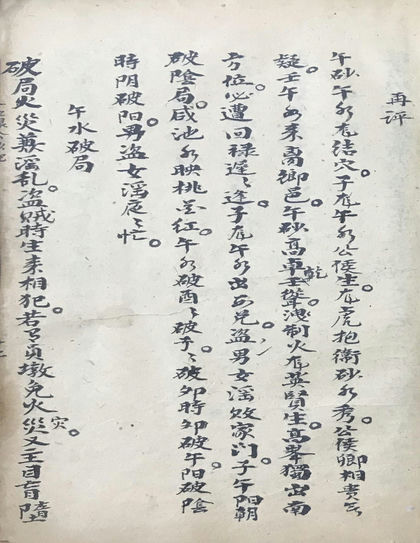 再評
午砂午水龙结穴。子龙午水公侯生。龙虎抱衛砂水秀。公侯卿相貴無
疑。壬午水来离鄉邑。午砂高卓乾聳。洩制火龙英賢生。高举獨出南
方位。必遭回禄遲遲。子龙午水出西兑。盗男女淫敗家门。子午陽朝
破陰局。咸池水映桃花红。午水破酉酉破子。子破卯時卯破午。陽破陰
時阴破阳。男盗女淫
午水破局
破局火災兼淫乱。盗贼時生来相犯。若有貞墩免火災。又主目盲墮